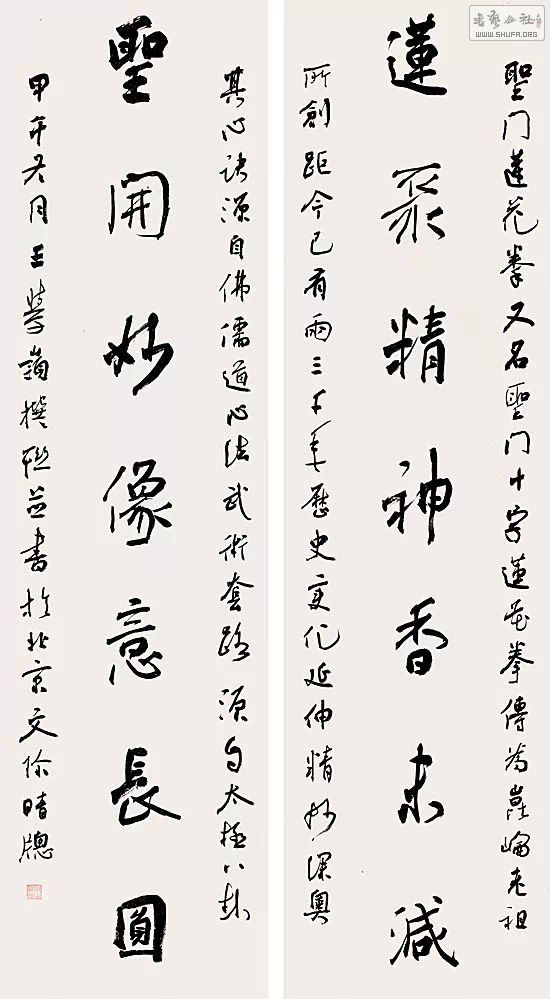 聖门蓮花拳又名聖门十字蓮花拳傳為崑崙老祖
蓮聚精神香未減
所創距今已有兩三千年歷史變化延伸精妙深奥
其心诀源自佛儒道心法武術套路源自太極八卦
聖開妙像意長圓
甲午冬月王 嶺撰聯並書於北京文 晴牕
书艺公社
WWW.SHUFA.ORG